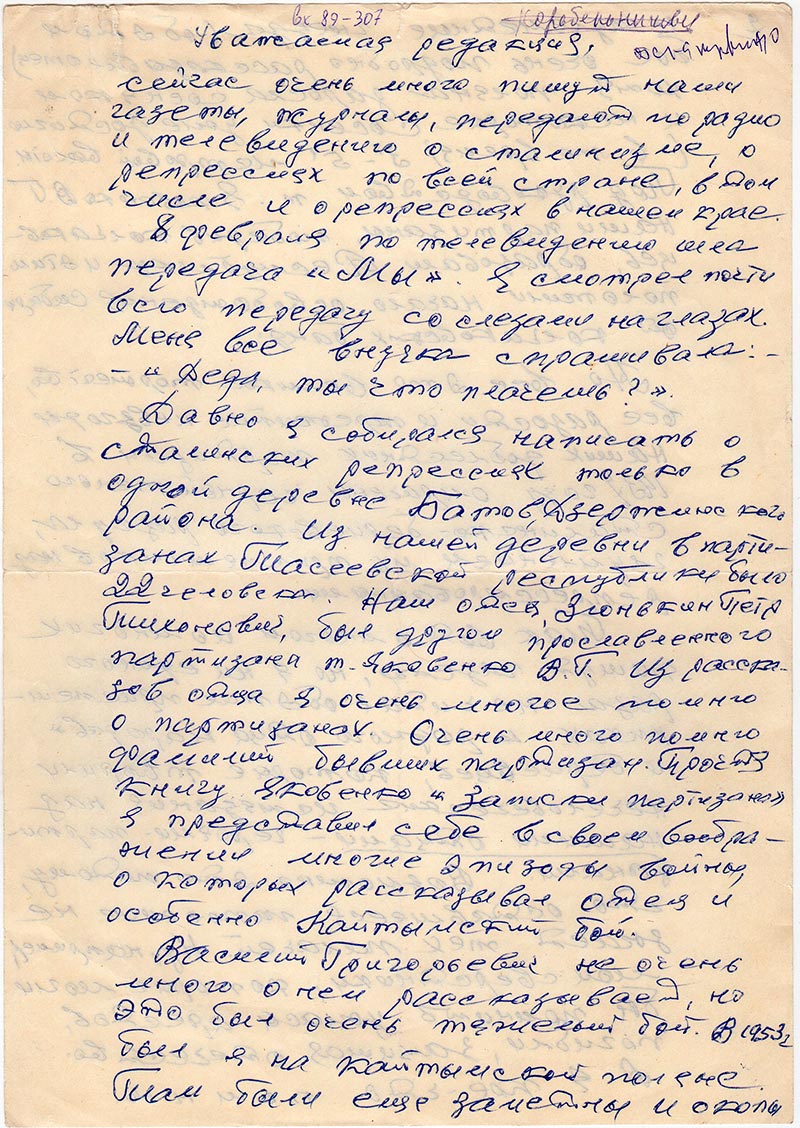 вх 89-307
Коробейникови
Уважаемая редакция,
сейчас очень много пишут наши
газеты, журналы, передают по радио
и телевидению о сталинизме, о
репрессиях по всей стране, в том
числе и о репрессиях в нашем крае.
8 февраля по телевидению шла
передача «Мы». Я смотрел почти
всю передачу со слезами на глазах.
Меня все внучка спрашивала: -
- "Деда, ты что плачешь?».
Давно я собирался написать о
сталинских репрессиях только в
одной деревне Батов Дзержинского
района. Из нашей деревни в парти-
занах Тасеевской республики было
22 человека. Наш отец, Зюнькин Петр
Тихонович, был другом прославленного
партизана т. Яковенко В.Г. Из расска-
зов отца я очень многое помню
о партизанах. Очень много помню
фамилий бывших партизан. Прочтя
книгу Яковенко «Записки партизана»
я представил себе в своем вообра-
жении многие эпизоды войны,
о которых рассказывал отец и
особенно Кайтымский бой.
Василий Григорьевич не очень
много о нем рассказывает, но
это был очень тяжелый бой. В 1953г
был я на кайтымской поляне.
Там были еще заметны и окопы